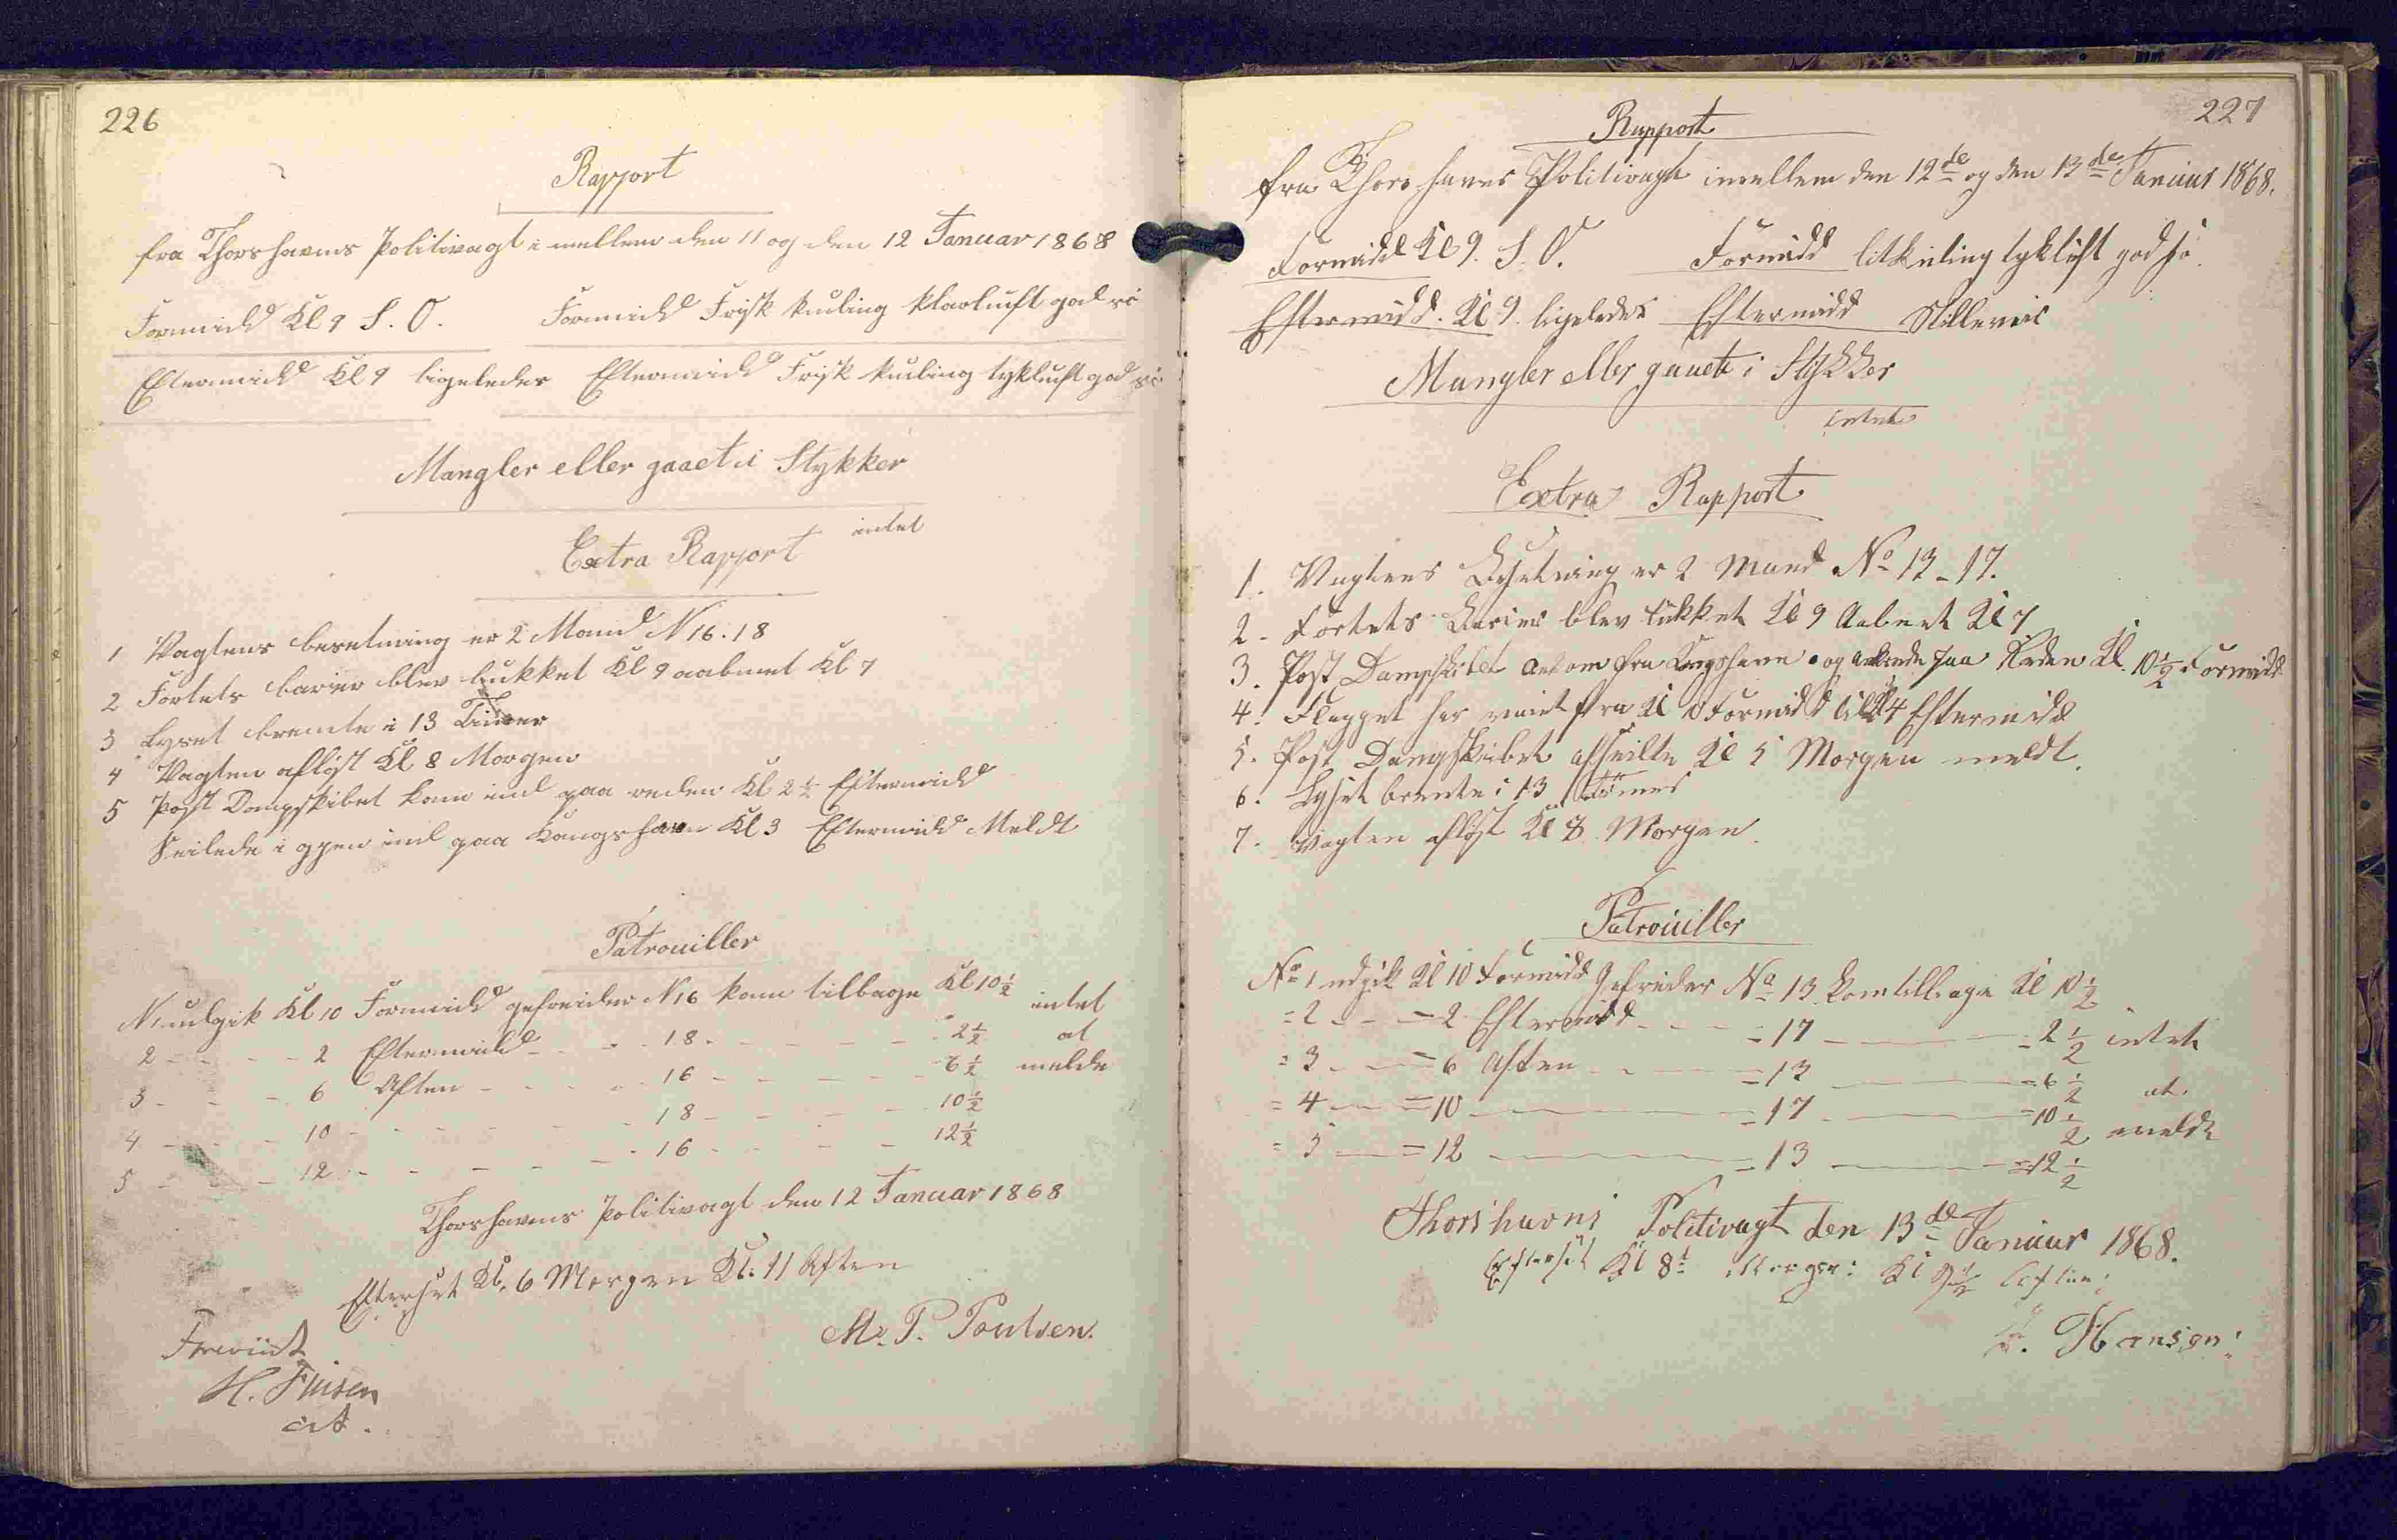 226
Rapport
fra Thorshavns Politivagt i mellem den 11 og den 12 Januar 1868
Formidd Kl 9 S. O. Formidd Frisk kuling klarluft god sö
Eftermidd Kl 9 ligeledes Eftermidd Frisk kuling tykluft god sö
Mangler eller gaaet i Stykker
intet
Extra Rapport
1 Vagtens besetning er 2 Mand N 16. 18
2 Fortets barier blev lukket Kl 9 aabnet Kl 7
3 Lyset brente i 13 Timer
4 Vagten aflöst Kl 8 Morgen
5 Post Dampskibet kom ind paa reden Kl 2 1/2 Eftermidd
Seilede i gjen ind paa Kongshavn Kl 3 Eftermidd Meldt
Patrouiller
N 1 udgik Kl 10 Formidd gefreider N 16 kom tilbage Kl 10 1/2 intet
2 - - - - 2 Eftermidd - - - 18 - - - - - 2 1/2 at
3 - - - 6 Aften - - - - 16 - - - - - 6 1/2 melde
4 - - - 10 - - - - - - 18 - - - - 10 1/2
5 - - - 12 - - - - - - 16 - - - - 12 1/2
Thorshavns Politivagt den 12 Januar 1868
Efterset Kl. 6 Morgen Kl. 11 Aften
M. P. Poulsen.
H. Finsen
227
Rapport
fra Thorshavns Politivagt imellem den 12de og den 13de Januar 1868.
Formidd Kl 9. S. O. Formidd litkuling tykluft god sö.
Eftermidd. Kl 9. ligeledes Eftermidd Stille
Mangler eller gaaet i Stykker
intet
Extra Rapport
1. Vagtens Besetning er 2 Mand No 13 - 17.
2. Fortets Barier blev lukket Kl 9 Aabnet Kl 7
3. Post Dampskibet ankom fra Kongshavn og ankrede paa Reden Kl. 10 1/2 Formidd
4. Flagget har vaiet fra Kl 10 Formidd til Kl 4 Eftermidd
5. Post Dampskibet afseilte Kl 5 Morgen meldt.
6. Lyset brente i 13 Timer
7. Vagten aflöst Kl 8 Morgen.
Patrouiller
No 1 udgik Kl 10 Formidd Gefreider No 13 kom tilbage Kl 10 1/2
= 2 - - = 2 Eftermidd - - - = 17 - - - = 2 1/2 intet
= 3 - - = 6 Aften - - - = 13 - - - = 6 1/2 at
= 4 - - = 10 - - - = 17 - - - = 10 1/2 melde
= 5 - - = 12 - - - = 13 - - - = 12 1/2
Thorshavns Politivagt den 13de Januar 1868.
Efterset Kl 8 Morgen: Kl 9 1/2 Aften:
Hansen: